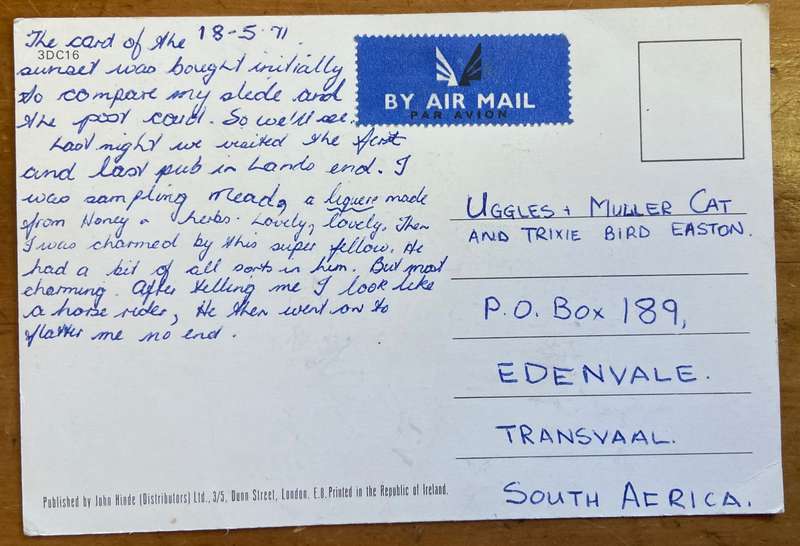 The card of the 18-5.71.
3DC16
sunset was bought initially
to compare my slide and
the post card. So we'll see.
Last night we visited the first
and last pub in Lands end. I
was sampling Mead, a liquere made
from Honey & herbs. Lovely, lovely. Then
I was charmed by this super fellow. He
had a bit of all sorts in him. But most
charming. After telling me I look like
a horse rider, He then went on to
flatter me no end.
BY AIR MAIL
PAR AVION
UGGLES + MULLER CAT
AND TRIXIE BIRD EASTON.
P.O. BOX 189,
EDENVALE.
TRANSVAAL.
SOUTH AFRICA.
Published by John Hinde (Distributors) Ltd., 3/5, Dunn Street, London, E.8. Printed in the Republic of Ireland.